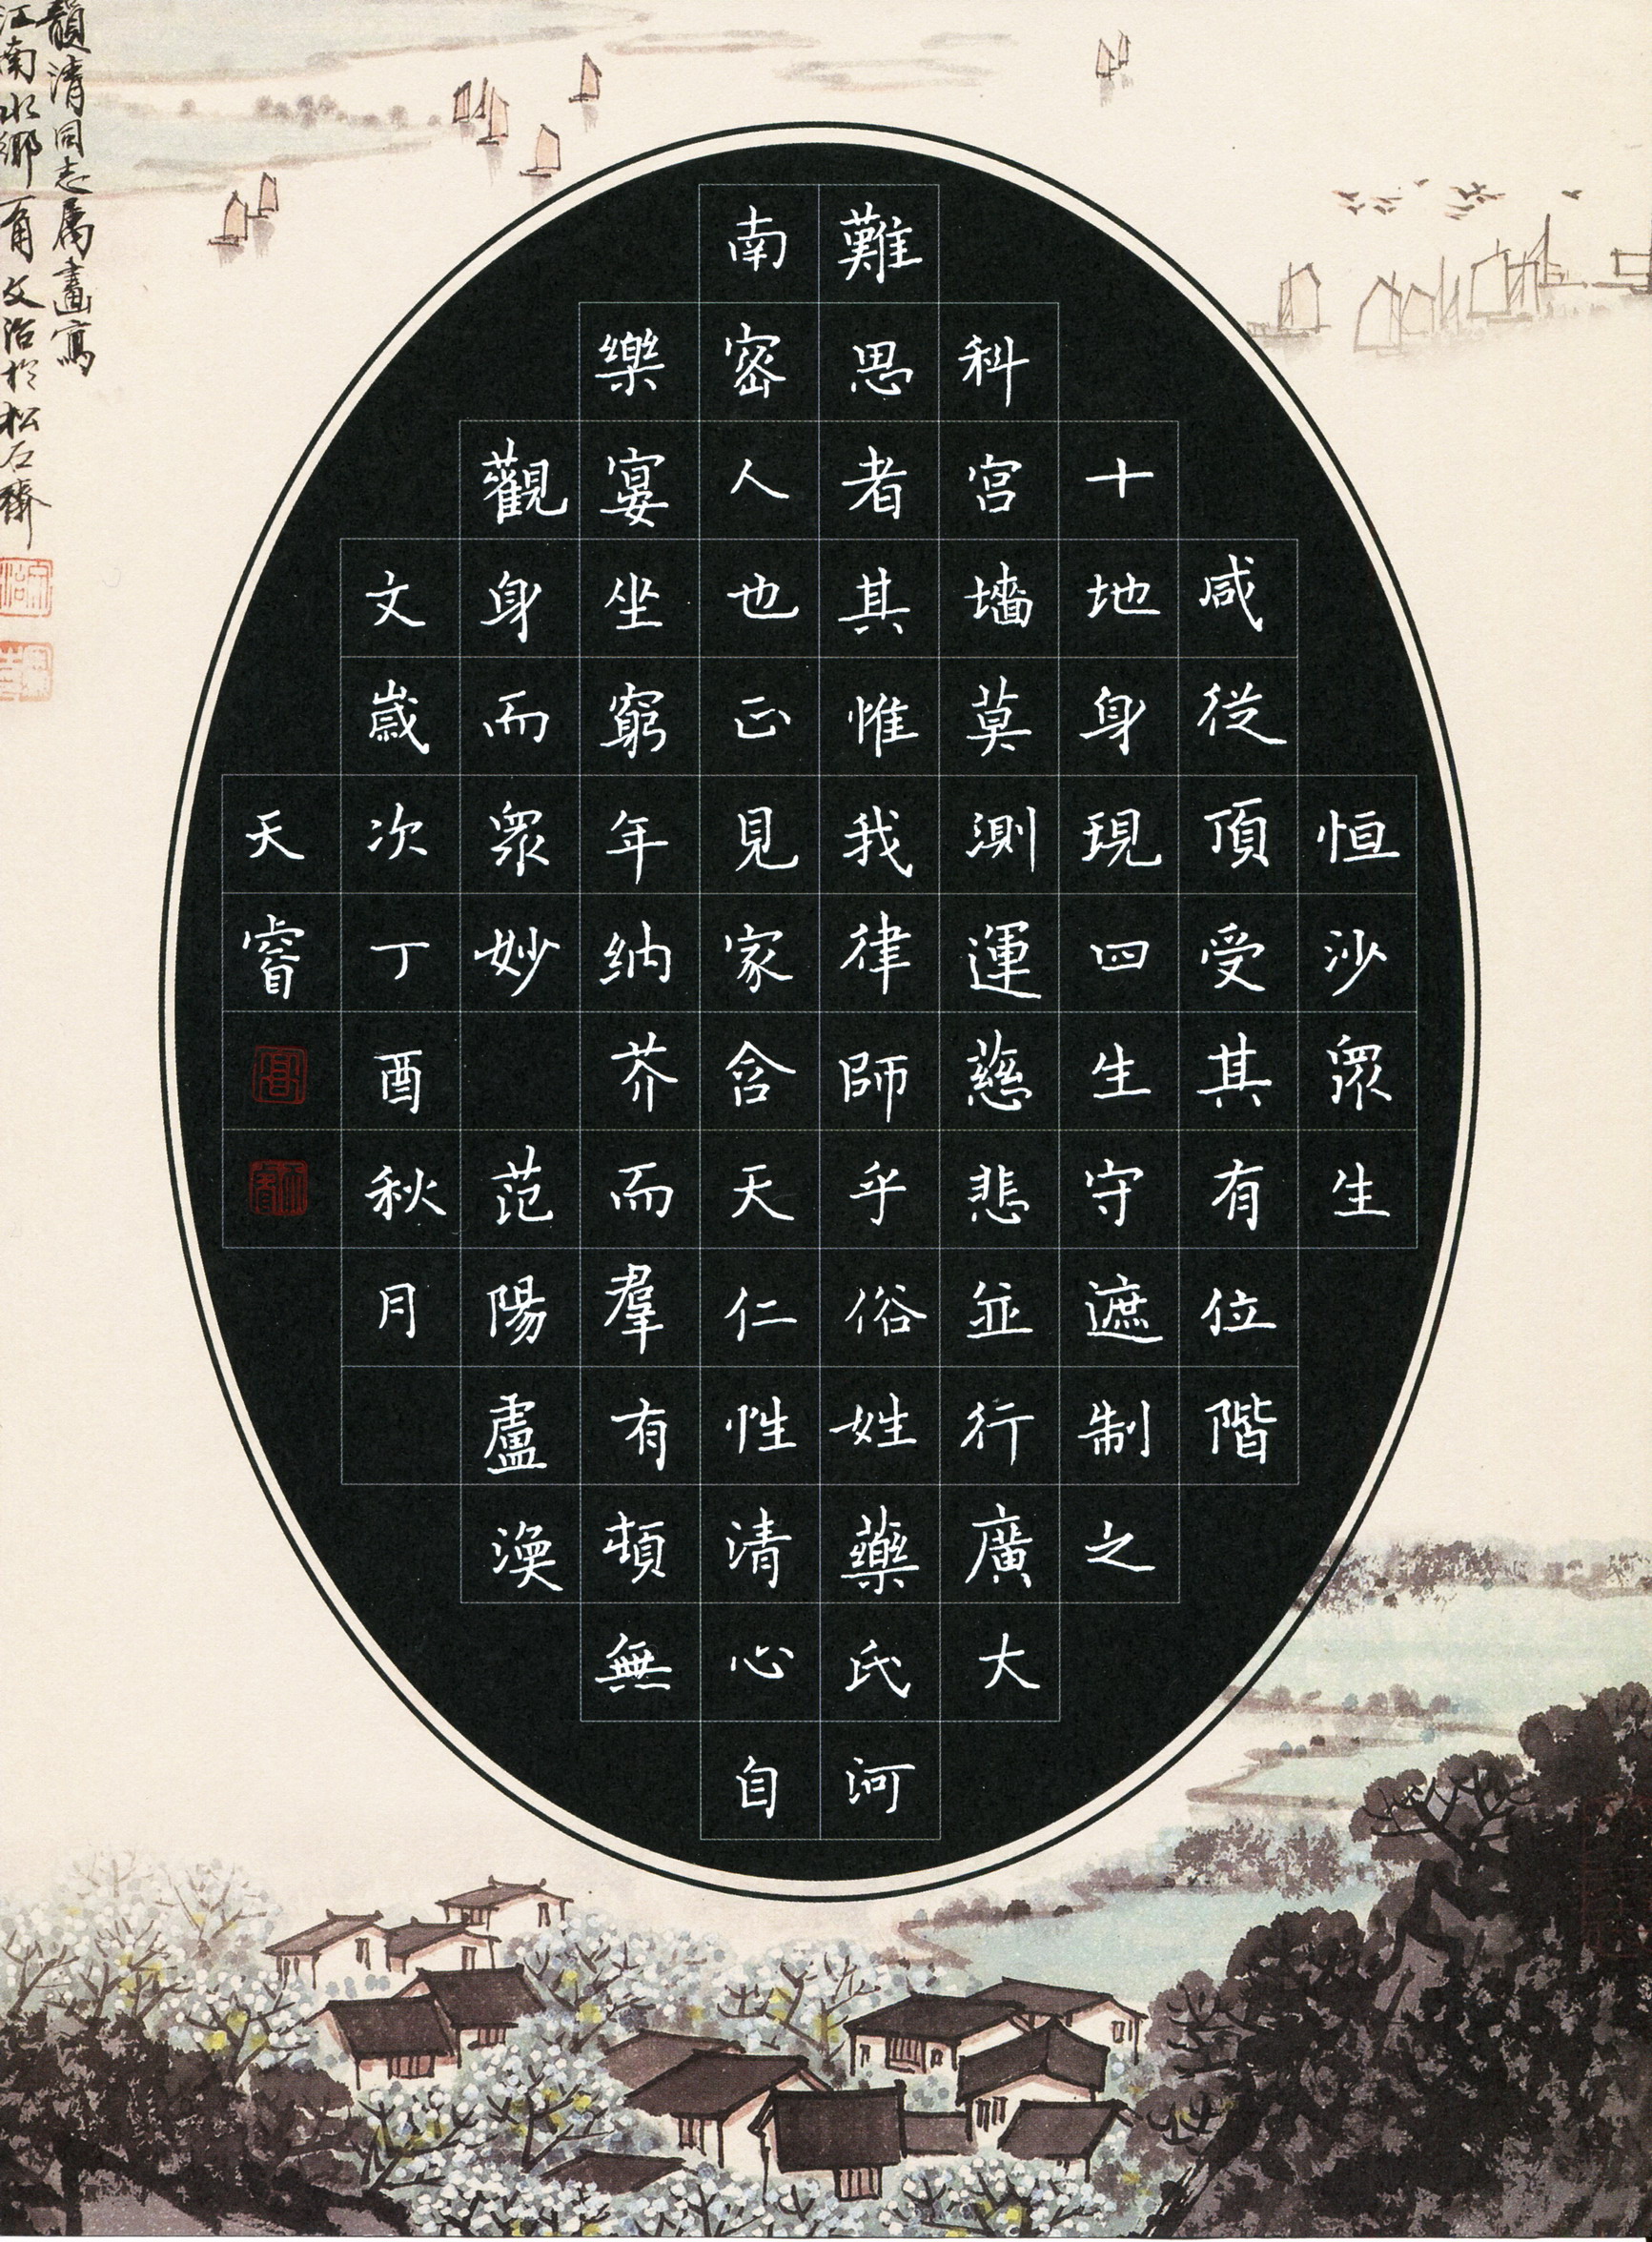 恒沙眾生
咸從頂受其有位階
十地身現四生守遮制之
科宮墻莫測運慈悲並行廣大
難思者其惟我律師乎俗姓藥氏河
南密人也正見家含天仁性清心自
樂宴坐窮年纳芥而羣有頓無
觀身而眾妙 范陽盧渙
文歲次丁酉秋月
天睿
韻清同志属畫寫
江南水鄉一角文治於松石齋